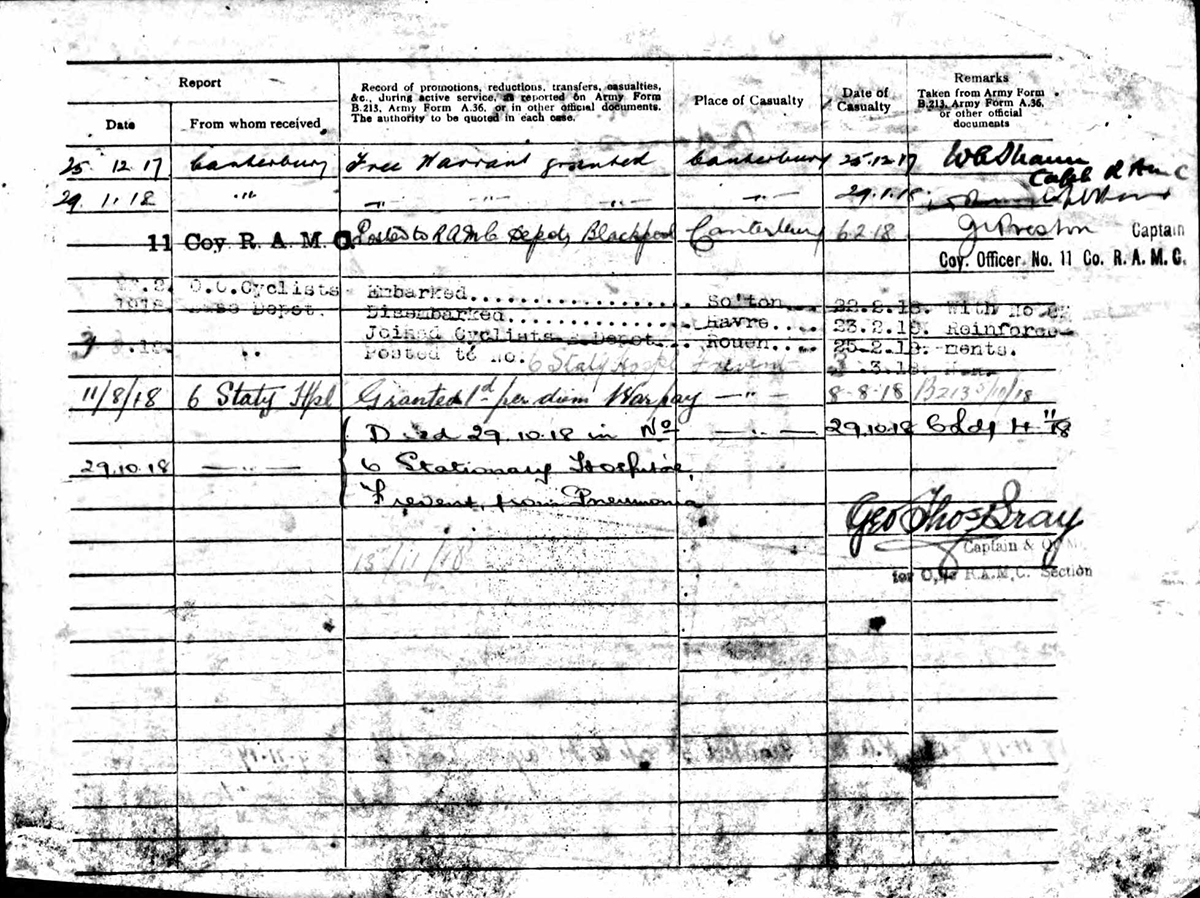 Report
Date
From whom received
Record of promotions, reductions, transfers, casualties,
&c., during active service, as reported on Army Form
B.213, Army Form A.36, or in other official documents.
The authority to be quoted in each case.
Place of Casualty
Date of
Casualty
Remarks
Taken from Army Form
B.213, Army Form A.36,
or other official
documents
25 12 17 Canterbury Free Warrant granted Canterbury 25.12.17
Capt R A M C
29.1.18 " " " " " 29.1.18
11 Coy R. A. M. C. Posted to R.A.M.C Depot, Blackpool Canterbury 6.2.18 Preston Captain
Coy. Officer No. 11 Co. R. A. M. C.
O.C. Cyclists Embarked So'ton 22.2.18. With No.
1918. Base Depot. Disembarked Havre 23.2.18. Reinforce-
Joined Cyclists B. Depot. Rouen 25.2.18. ments.
.. Posted to No. 6 Staty Hospl Frevent .3.18.
11/8/18 6 Staty Hpl Granted 1d per diem War pay — " — 8-8-18 B213
Died 29.10.18 in No — " — 29.10.18
29.10.18 — " — 6 Stationary Hospital,
Frevent, from Pneumonia
Geo Thos Bray
13/11/18
Captain & Qr Mr.
for O. i/c R.A.M.C. Section